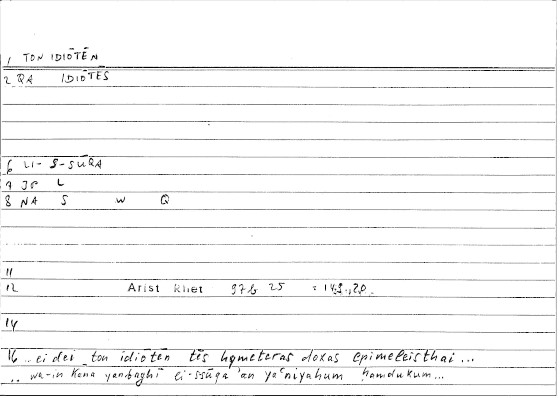 1 TON IDIŌTĒN
2 QA IDIŌTĒS
6 LI-S-SŪQA
7 JP L
8 NA S W Q
11
12 Arist Rhet 97b 25 = 149,20.
14
16 ...ei dei ton idiōtēn tēs hymeteras doxas epimeleisthai...
.. wa-in kāna yanbaghī li-ssūqa 'an ya'niyahum hamdukum...